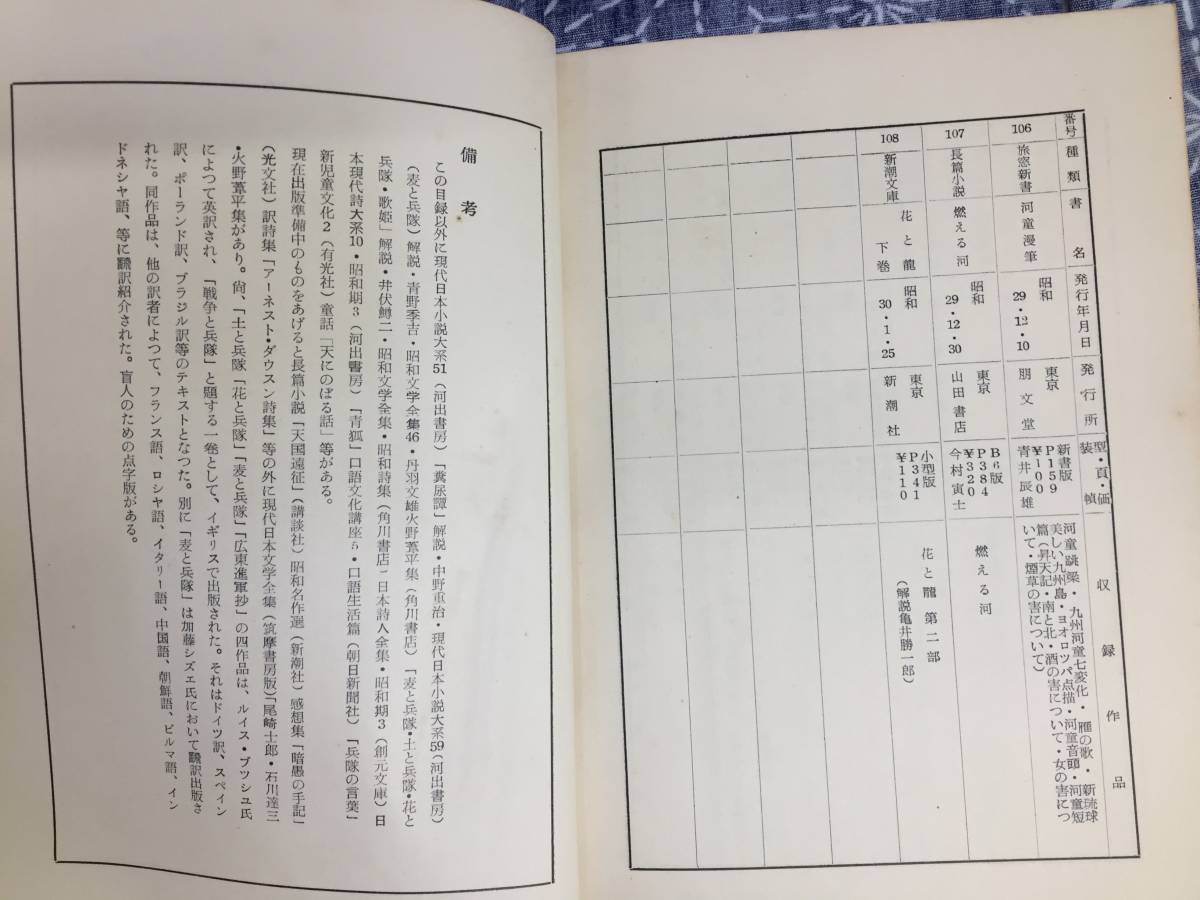 番号
種類
書名
発行年月日
発行所
型・頁・価
装幀
収録作品
106
旅窓新書
河童漫筆
昭和
29・12・10
東京
朋文堂
新書版
P159
¥100
青井辰雄
河童跳梁・九州河童七変化・雁の歌・新琉球
美しい九州島・ヨオロツパ点描・河童音頭・河童短
篇(昇天記・南と北・酒の害について・女の害につ
いて・煙草の害について)
107
長篇小説
燃える河
昭和
29・12・30
東京
山田書店
B6版
P384
¥320
今村寅士
燃える河
108
新潮文庫
花と龍
下巻
昭和
30・1・25
東京
新潮社
小型版
P341
¥110
花と龍 第二部
(解説亀井勝一郎)
備考
この目録以外に現代日本小説大系51(河出書房)「糞尿譚」解説・中野重治・現代日本小説大系59(河出書房)
(麦と兵隊)解説・青野季吉・昭和文学全集46・丹羽文雄火野葦平集(角川書店)「麦と兵隊・土と兵隊・花と
兵隊・歌姫」解説・井伏鱒二・昭和文学全集・昭和詩集(角川書店)日本詩人全集・昭和期3(創元文庫)日
本現代詩大系10・昭和期3(河出書房)「青狐」口語文化講座5・口語生活篇(朝日新聞社)「兵隊の言葉」
新児童文化2(有光社)童話「天にのぼる話」等がある。
現在出版準備中のものをあげると長篇小説「天国遠征」(講談社)昭和名作選(新潮社)感想集「暗愚の手記」
(光文社)訳詩集「アーネスト・ダウスン詩集」等の外に現代日本文学全集(筑摩書房版)「尾崎士郎・石川達三
・火野葦平集があり。尚、「土と兵隊「花と兵隊」「麦と兵隊」「広東進軍抄」の四作品は、ルイス・ブツシユ氏
によつて英訳され、「戦争と兵隊」と題する一巻として、イギリスで出版された。それはドイツ訳、スペイン
訳、ポーランド訳、ブラジル訳等のテキストとなつた。別に「麦と兵隊」は加藤シズエ氏において飜訳出版さ
れた。同作品は、他の訳者によつて、フランス語、ロシヤ語、イタリー語、中国語、朝鮮語、ビルマ語、イン
ドネシヤ語、等に飜訳紹介された。盲人のための点字版がある。